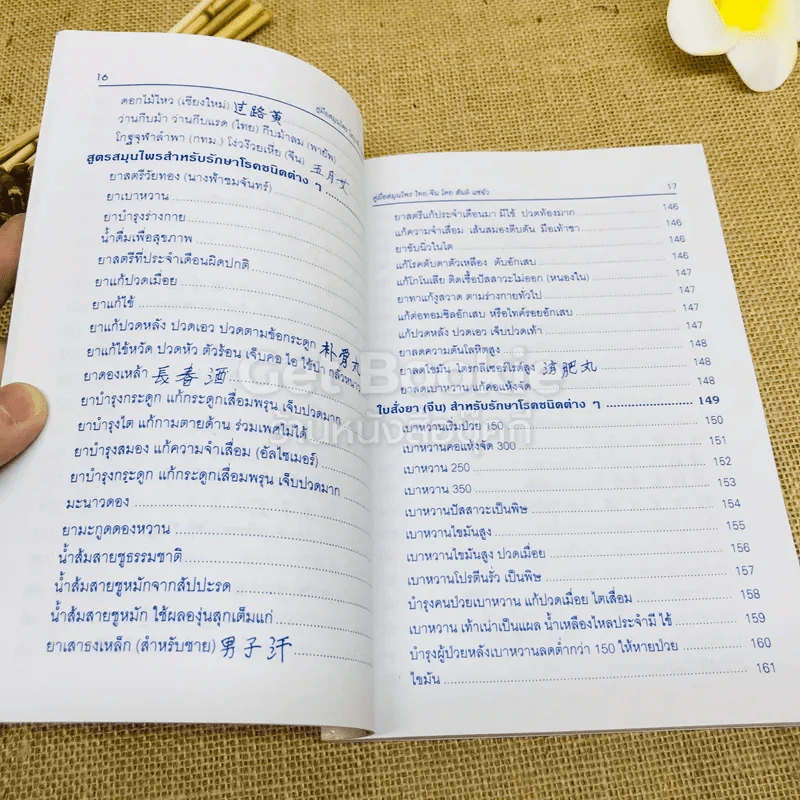 16
คู่มือสมุนไพร ไทย
ดอกไม้ไหว (เชียงใหม่) 过路黄
ว่านกีบม้า ว่านกีบแรด (ไทย) กีบม้าลม (พายัพ)
โกฐจุฬาลำพา (กทม.) โง่วง๊วยเหี่ย (จีน) 五月艾
สูตรสมุนไพรสำหรับรักษาโรคชนิดต่าง ๆ
ยาสตรีวัยทอง (นางฟ้าชมจันทร์)
ยาเบาหวาน
ยาบำรุงร่างกาย
น้ำดื่มเพื่อสุขภาพ
ยาสตรีที่ประจำเดือนผิดปกติ
ยาแก้ปวดเมื่อย
ยาแก้ไข้
ยาแก้ปวดหลัง ปวดเอว ปวดตามข้อกระดูก
ยาแก้ไข้หวัด ปวดหัว ตัวร้อน เจ็บคอ ไอ ไร้ป่า กล้วหนาว 朴骨丸
ยาดองเหล้า 長春酒
ยาบำรุงกระดูก แก้กระดูกเสื่อมพรุน เจ็บปวดมาก
ยาบำรุงไต แก้กามตายด้าน ร่วมเพศไม่ได้
ยาบำรุงสมอง แก้ความจำเสื่อม (อัลไซเมอร์)
ยาบำรุงกระดูก แก้กระดูกเสื่อมพรุน เจ็บปวดมาก
มะนาวดอง
ยามะกูดดองหวาน
น้ำส้มสายชูธรรมชาติ
น้ำส้มสายชูหมักจากสัปปะรด
น้ำส้มสายชูหมัก ใช้ผลองุ่นสุกเต็มแก่
ยาเสาธงเหล็ก (สำหรับชาย) 男子汗
คู่มือสมุนไพร ไทย-จีน โดย สันติ แซ่อั้ว 17
ยาสตรีแก้ประจำเดือนมา มีไข้ ปวดท้องมาก 146
แก้ความจำเสื่อม เส้นสมองตีบตัน มือเท้าชา 146
ยาขับนิ่วในไต 146
แก้โรคดับตาตัวเหลือง ตับอักเสบ 147
แก้โกโนเลีย ติดเชื้อปัสสาวะไม่ออก (หนองใน) 147
ยาทาแก้งูสวาด ตามร่างกายทั่วไป 147
แก้ต่อทอมซิลอักเสบ หรือไทค์รอยอักเสบ 147
แก้ปวดหลัง ปวดเอว เจ็บปวดเท้า 147
ยาลดความดันโลหิตสูง 148
ยาลดไขมัน ไตรกลีเซอร์ไรด์สูง 消肥丸 148
ยาลดเบาหวาน แก้คอแห้งจัด 148
ใบสั่งยา (จีน) สำหรับรักษาโรคชนิดต่าง ๆ 149
เบาหวานเริ่มป่วย 150 150
เบาหวานคอแห้งจัด 300 151
เบาหวาน 250 152
เบาหวาน 350 153
เบาหวานปัสสาวะเป็นพิษ 154
เบาหวานไขมันสูง 155
เบาหวานไขมันสูง ปวดเมื่อย 156
เบาหวานโปรตีนรั่ว เป็นพิษ 157
บำรุงคนป่วยเบาหวาน แก้ปวดเมื่อย ไตเสื่อม 158
เบาหวาน เท้าเน่าเป็นแผล น้ำเหลืองไหลประจำมี ไข้ 159
บำรุงผู้ป่วยหลังเบาหวานลดต่ำกว่า 150 ให้หายป่วย 160
ไขมัน 161